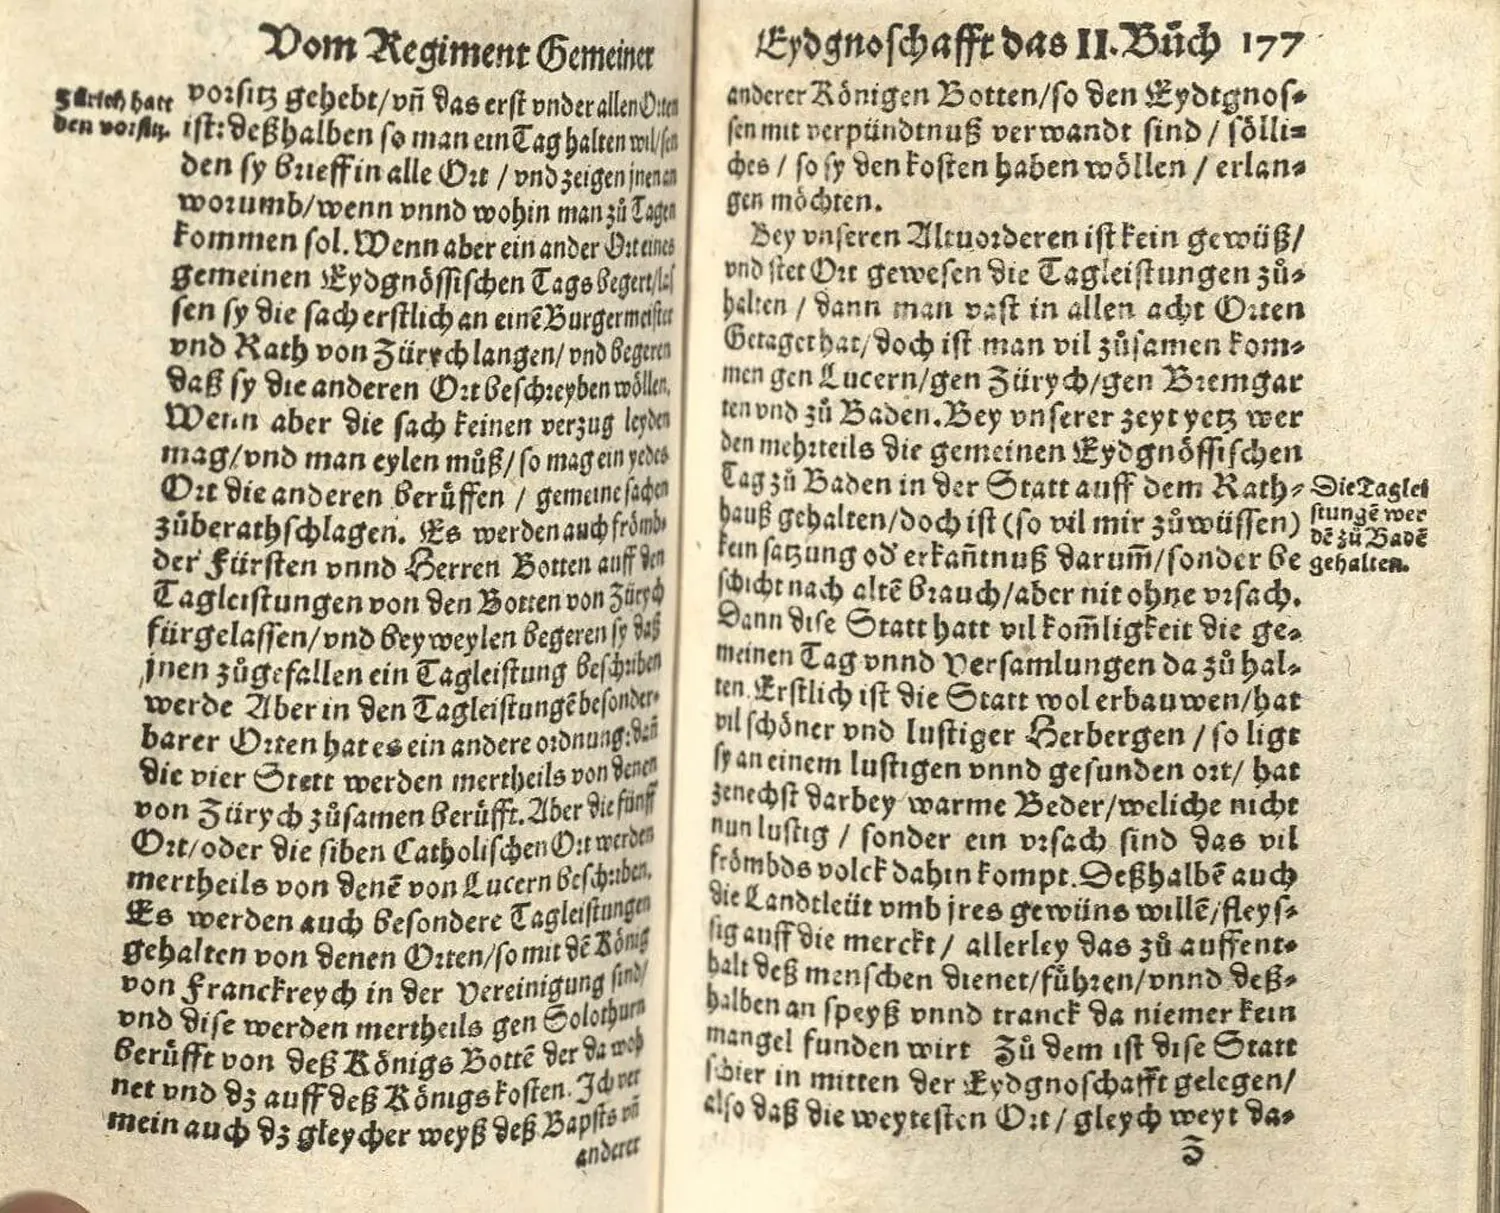 Vom Regiment Gemeiner
Zürich hatt
den vorsitz.
vorsitz gehebt/vñ das erst vnder allen Orten
ist: deßhalben so man ein Tag halten wil/sen
den sy brieff in alle Ort / vnd zeigen jnen an
worumb/wenn vnnd wohin man zů Tagen
kommen sol. Wenn aber ein ander Ort eines
gemeinen Eydgnössischen Tags begert/las
sen sy die sach erstlich an einẽ Burgermeister
vnd Rath von Zürych langen/vnd begeren
daß sy die anderen Ort beschreyben wöllen.
Wenn aber die sach keinen verzug leyden
mag/vnd man eylen můß/so mag ein yedes
Ort die anderen berůffen / gemeine sachen
zůberathschlagen. Es werden auch frömb-
der Fürsten vnnd Herren Botten auff den
Tagleistungen von den Botten von Zürych
fürgelassen/vnd bey weylen begeren sy daß
jnen zůgefallen ein Tagleistung beschriben
werde Aber in den Tagleistungẽ besonder-
barer Orten hat es ein andere ordnung: dañ
die vier Stett werden mertheils von denen
von Zürych zůsamen berůfft. Aber die fünff
Ort/oder die siben Catholischen Ort werden
mertheils von denẽ von Lucern beschriben.
Es werden auch besondere Tagleistungen
gehalten von denen Orten/so mit dẽ König
von Franckreych in der Vereinigung sind/
vnd dise werden mertheils gen Solothurn
berůfft von deß Königs Bottẽ der da woh
net vnd dz auff deß Königs kosten. Ich ver
mein auch dz gleycher weyß deß Bapsts vñ
anderer
Eydgnoschafft das II. Bůch 177
anderer Königen Botten/so den Eydtgnos-
sen mit verpündtnuß verwandt sind / sölli-
ches / so sy den kosten haben wöllen / erlan-
gen möchten.
Bey vnseren Altuorderen ist kein gewüß/
vnd stet Ort gewesen die Tagleistungen zů-
halten / dann man vast in allen acht Orten
Getaget hat/doch ist man vil zůsamen kom-
men gen Lucern/gen Zürych/gen Bremgar
ten vnd zů Baden. Bey vnserer zeyt yetz wer
den mehrteils die gemeinen Eydgnössischen
Tag zů Baden in der Statt auff dem Rath-
hauß gehalten/doch ist (so vil mir zůwüssen)
kein satzung od' erkañtnuß darum̃/sonder be
schicht nach altẽ brauch/aber nit ohne vrsach.
Dann dise Statt hatt vil kom̃ligkeit die ge-
meinen Tag vnnd Versamlungen da zů hal-
ten. Erstlich ist die Statt wol erbauwen/hat
vil schöner vnd lustiger Herbergen / so ligt
sy an einem lustigen vnnd gesunden ort/ hat
zenechst darbey warme Beder/weliche nicht
nun lustig / sonder ein vrsach sind das vil
frömbds volck dahin kompt. Deßhalbẽ auch
die Landtleüt vmb jres gewüns willẽ/fleys-
sig auff die merckt / allerley das zů auffent-
halt deß menschen dienet/führen/vnnd deß-
halben an speyß vnnd tranck da niemer kein
mangel funden wirt Zů dem ist dise Statt
schier in mitten der Eydgnoschafft gelegen/
also daß die weytesten Ort / gleych weyt da-
Die Taglei
stungẽ wer
dẽ zů Badẽ
gehalten.
Z